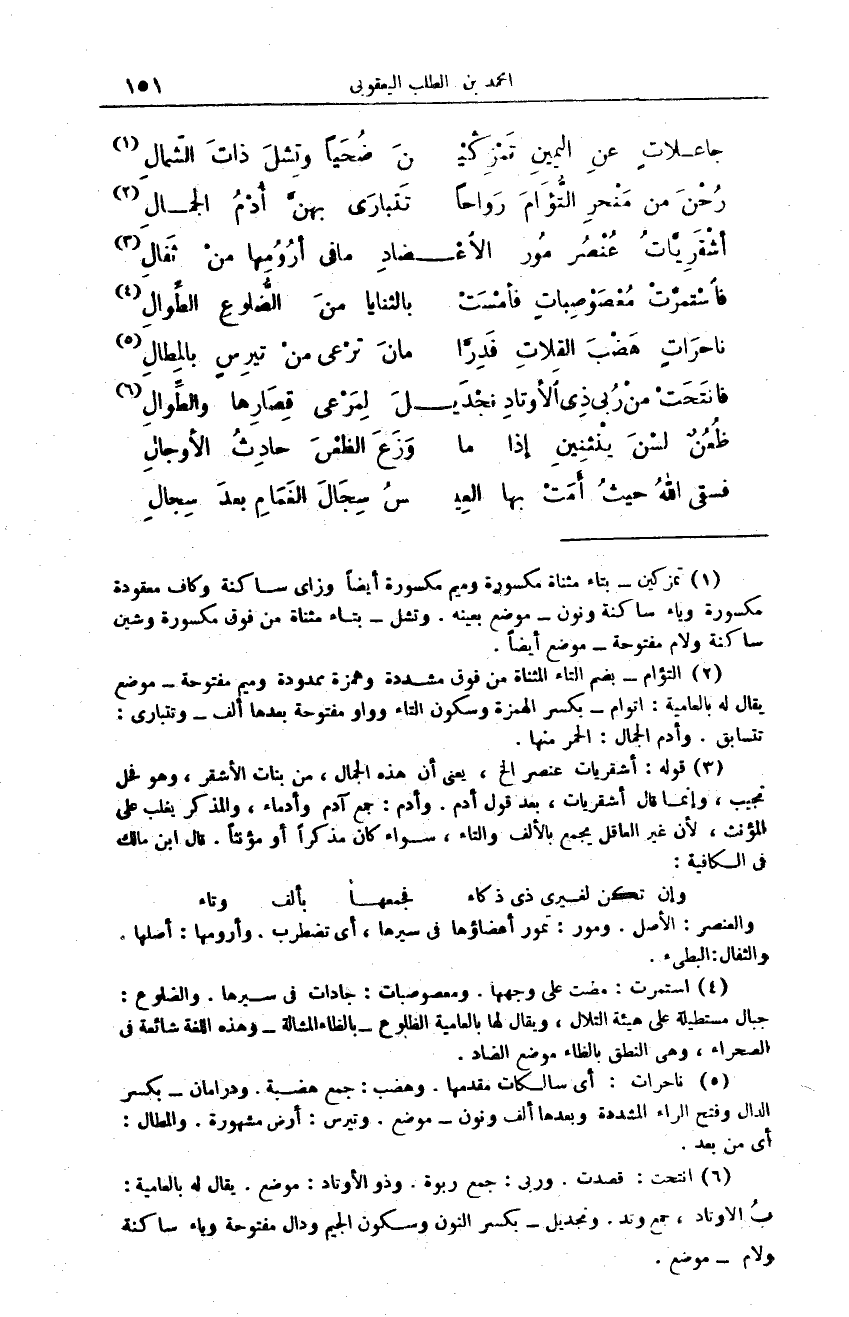 احمد بن الطلب اليعقوبى ١٥١
جاعلاتٍ عنِ اليمينِ تَمَزِكْيْـ نَ ضُحَيًّا وتِشْلَ ذاتَ الشّمالِ (١)
رُحْنَ من مَنْحرِ التُّؤَامَ رَواحاً تَتَبارَى بهنَّ أُدْمُ الجمالِ (٢)
أشْقَرِيَّاتُ عُنْصُرٍ مُورُ الأعْضادِ مافى أرُومِها منْ ثَفَالِ (٣)
فاُسْتمرَّتْ مُعْصَوْصِباتٍ فأمْسَتْ بالثنايا منَ الضُّلوعِ الطِّوالِ (٤)
ناحرَاتٍ هَضْبَ القِلاتِ فَدِرًّا مانَ ترْعى منْ تيرِسٍ بالمِطالِ (٥)
فانتَحَتْ منْ رُبى ذِى الأوتادِ نجْدَيـلَ لِمَرْعى قِصَارِها والطِّوالِ (٦)
ظُعُنٌ لسْنَ ينْثنِينِ إذا ما وَزَعَ الظعْنَ حادِثُ الأوجالِ
فسقى اللهُ حيثُ أمّتْ بها العِيـ سُ سِجَالَ الغَمَامِ بعدَ سِجالِ
(١) تمزكين – بتاء مثناة مكسورة وميم مكسورة أيضاً وزاى ساكنة وكاف معقودة
مكسورة وياء ساكنة ونون – موضع بعينه . وتشل – بتاء مثناة من فوق مكسورة وشين
ساكنة ولام مفتوحة – موضع أيضاً .
(٢) التؤام – بضم التاء المثناة من فوق مشددة وهمزة ممدودة وميم مفتوحة – موضع
يقال له بالعامية : اتوام – بكسر الهمزة وسكون التاء وواو مفتوحة بعدها ألف – وتتبارى :
تتسابق . وأدم الجمال : الحمر منها .
(٣) قوله : أشقريات عنصر الخ ، يعنى أن هذه الجمال ، من بنات الأشقر ، وهو فحل
نجيب ، وإنما قال أشقريات ، بعد قول أدم . وأدم : جمع آدم وأدماء ، والمذكر يغلب على
المؤنث ، لأن غير العاقل يجمع بالألف والتاء ، سواء كان مذكراً أو مؤنثاً . قال ابن مالك
فى الكافية :
وإن تكن لغيرى ذى ذكاء فجمعها بألف وتاء
والعنصر : الأصل . ومور : تمور أعضاؤها فى سيرها ، أى تضطرب . وأرومها : أصلها .
والثفال : البطىء .
(٤) استمرت : مضت على وجهها . ومعصوصبات : جادات فى سيرها . والضلوع :
جبال مستطيلة على هيئة التلال ، ويقال لها بالعامية الظلوع – بالظاء المشالة – وهذه اللغة شائعة فى
الصحراء ، وهى النطق بالظاء موضع الضاد .
(٥) ناحرات : أى سالكات مقدمها . وهضب : جمع هضبة . ودرامان – بكسر
الدال وفتح الراء المشددة وبعدها ألف ونون – موضع . وتيرس : أرض مشهورة . والمطال :
أى من بعد .
(٦) انتحت : قصدت . وربى : جمع ربوة . وذو الأوتاد : موضع . يقال له بالعامية :
بُ الاوتاد ، جمع وتد . ونجديل – بكسر النون وسكون الجيم ودال مفتوحة وياء ساكنة
ولام – موضع .